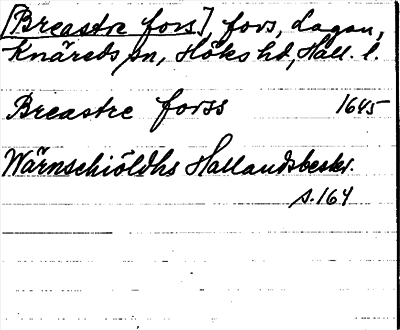 [Breastre fors] fors, Lagan,
Knäreds sn, Höks hd, Hall. l.
Breastre forss 1645
Wärnschiöldhs Hallandsbeskr.
s. 164